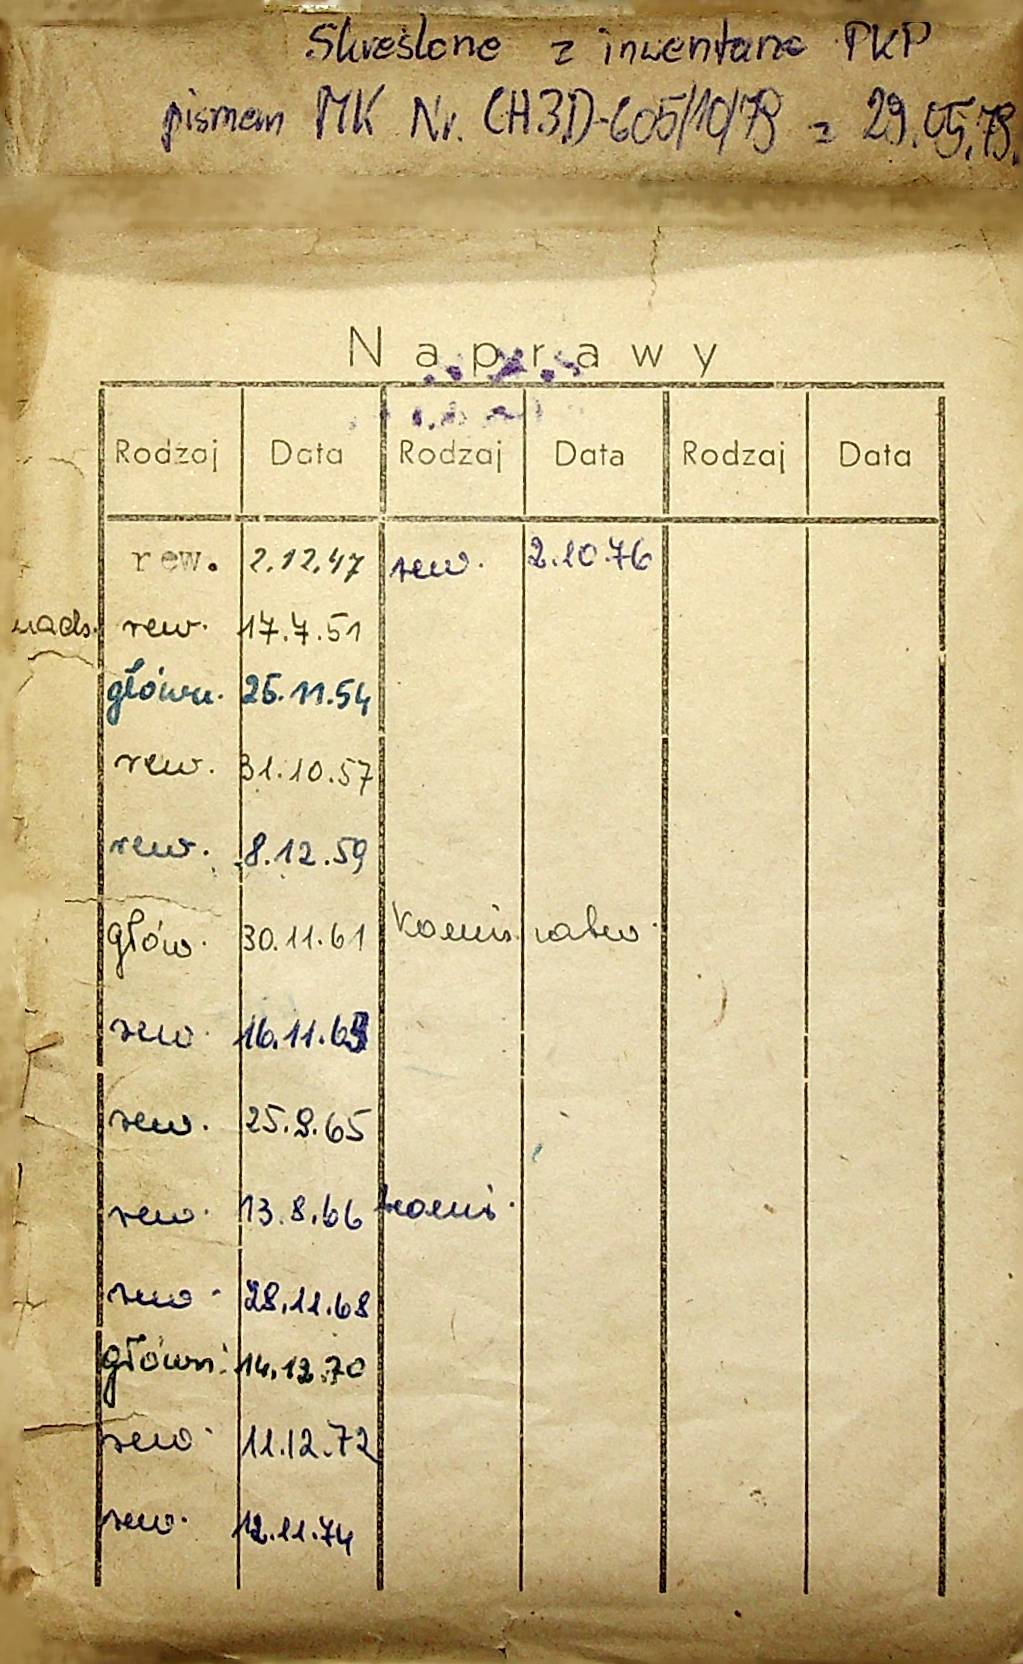 Skreślone z inwentarza PKP
pismem MK Nr. CH3D-605/10/79 z 29.05.79.
Naprawy
Rodzaj Data Rodzaj Data Rodzaj Data
rew. 2.12.47 rew. 2.10.76
nads. rew. 17.7.51
główn. 25.11.54
rew. 31.10.57
rew. 8.12.59
głów. 30.11.61
rew. 16.11.63
rew. 25.9.65
rew. 13.8.66
rew. 28.11.68
główn. 14.12.70
rew. 11.12.72
rew. 12.11.74